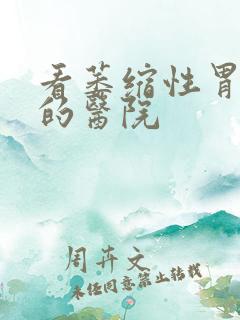 看萎缩性胃
的醫院
周卉文
未经同意禁止转载